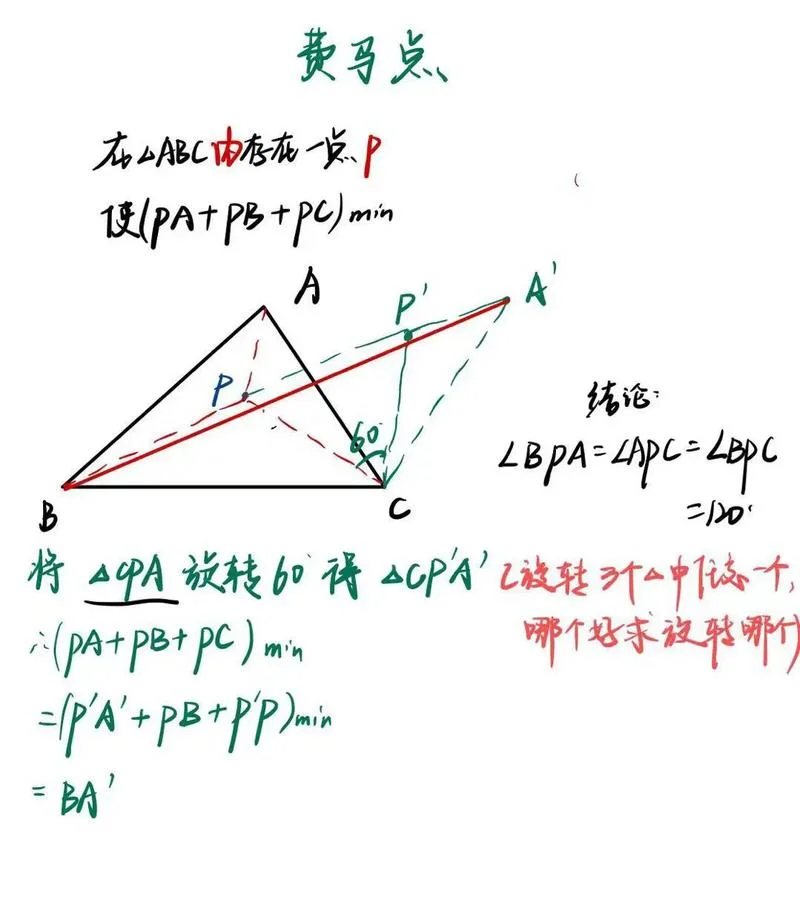 费马点
在△ABC内存在一点P
使(PA+PB+PC)min
A
P'
A'
P
60°
B
C
结论:
∠BPA=∠APC=∠BPC
=120°
将 △CPA 旋转60°得 △CP'A'
(旋转3个△中任意一个,
哪个好求旋转哪个)
∴(PA+PB+PC)min
=(P'A'+PB+P'P)min
=BA'